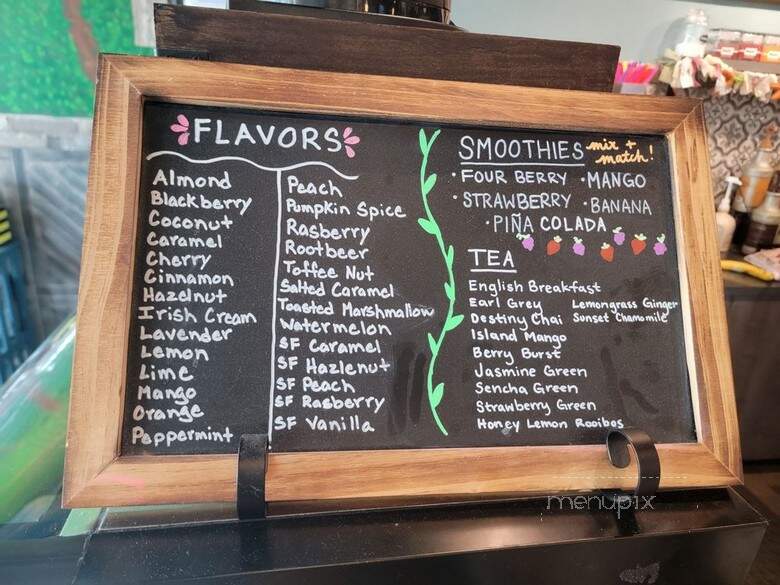 FLAVORS
Almond
Blackberry
Coconut
Caramel
Cherry
Cinnamon
Hazelnut
Irish Cream
Lavender
Lemon
Lime
Mango
Orange
Peppermint
Peach
Pumpkin Spice
Rasberry
Rootbeer
Toffee Nut
Salted Caramel
Toasted Marshmallow
Watermelon
SF Caramel
SF Hazlenut
SF Peach
SF Rasberry
SF Vanilla
SMOOTHIES mix + match!
• FOUR BERRY • MANGO
• STRAWBERRY • BANANA
• PIÑA COLADA
TEA
English Breakfast
Earl Grey
Destiny Chai
Island Mango
Berry Burst
Jasmine Green
Sencha Green
Strawberry Green
Honey Lemon Rooibos
Lemongrass Ginger
Sunset Chamomile
menupix